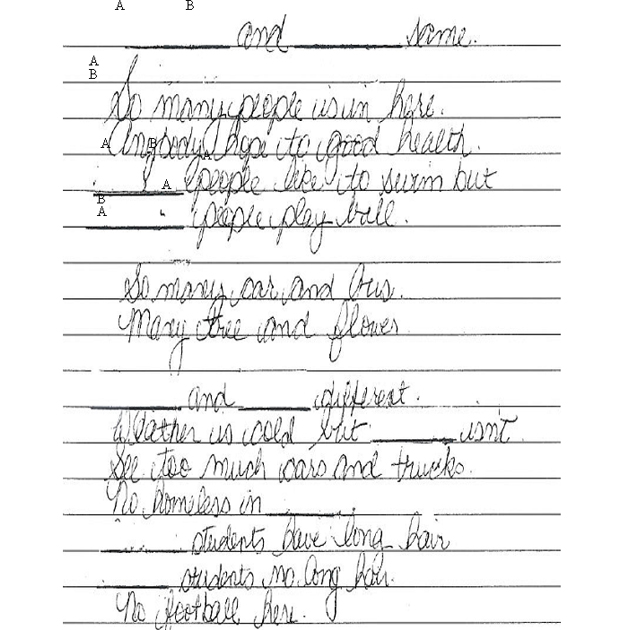 A B
and same.
A
B
So many people is in here.
Anybody hope to good health.
A B A
people like to swim but
A
B
A
people play ball.
So many car and bus.
Many tree and flower
and different.
Weather is cold but isn't.
See too much cars and trucks.
No homeless in
students have long hair
students no long hair.
No football here.